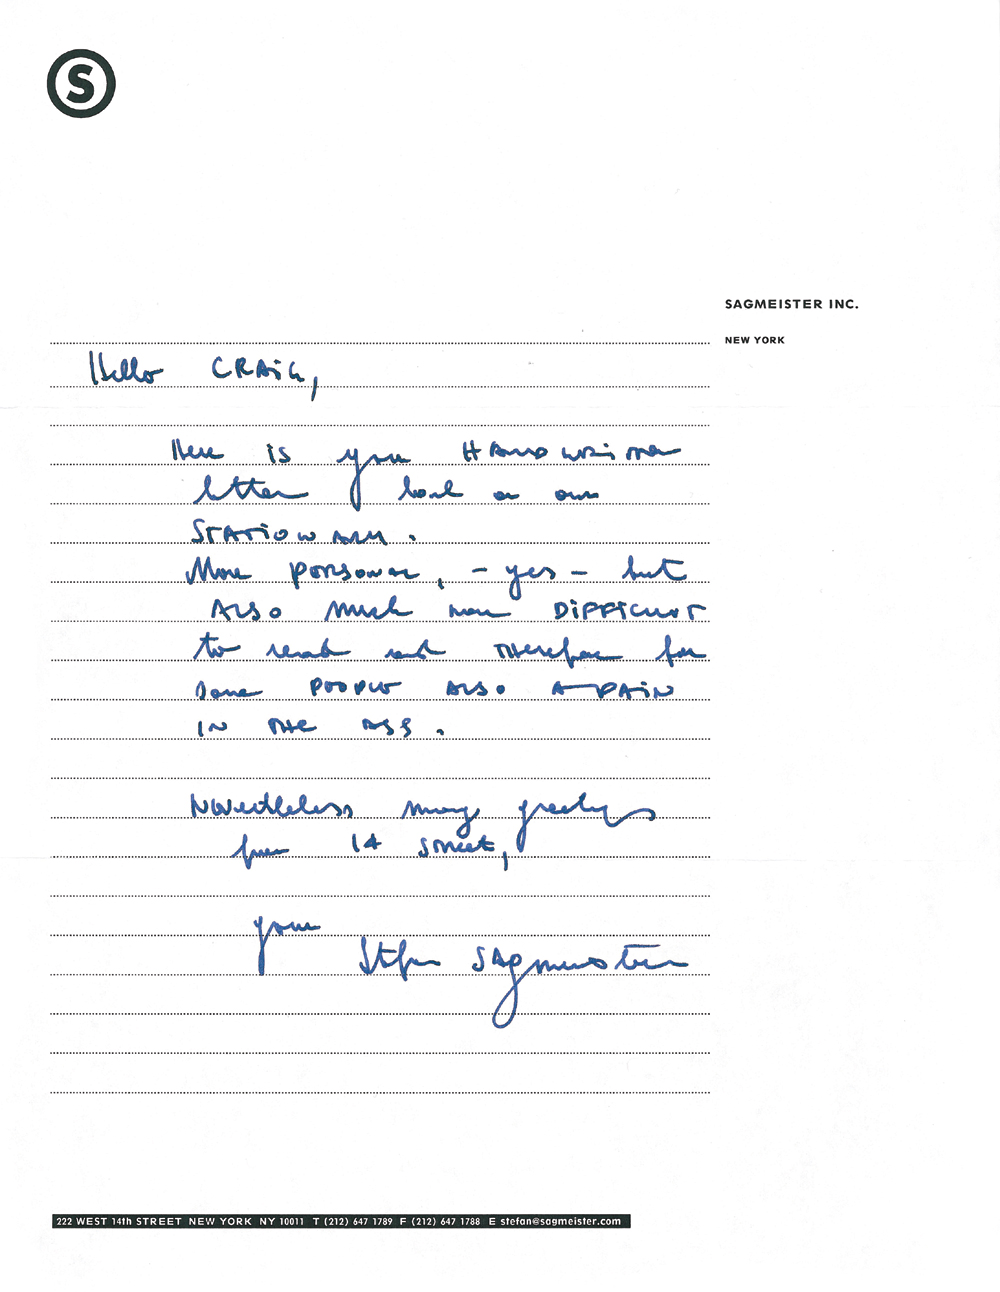 S
SAGMEISTER INC.
NEW YORK
Hello CRAIG,
Here is your HANDWRITTEN
letter back on our
STATIONARY.
More personal, - yes - but
ALSO much more DIFFICULT
to read and therefore for
some PEOPLE ALSO A PAIN
IN THE ASS.
Nevertheless many greetings
from 14 street,
your
Stefan Sagmeister
222 WEST 14th STREET NEW YORK NY 10011 T (212) 647 1789 F (212) 647 1788 E stefan@sagmeister.com